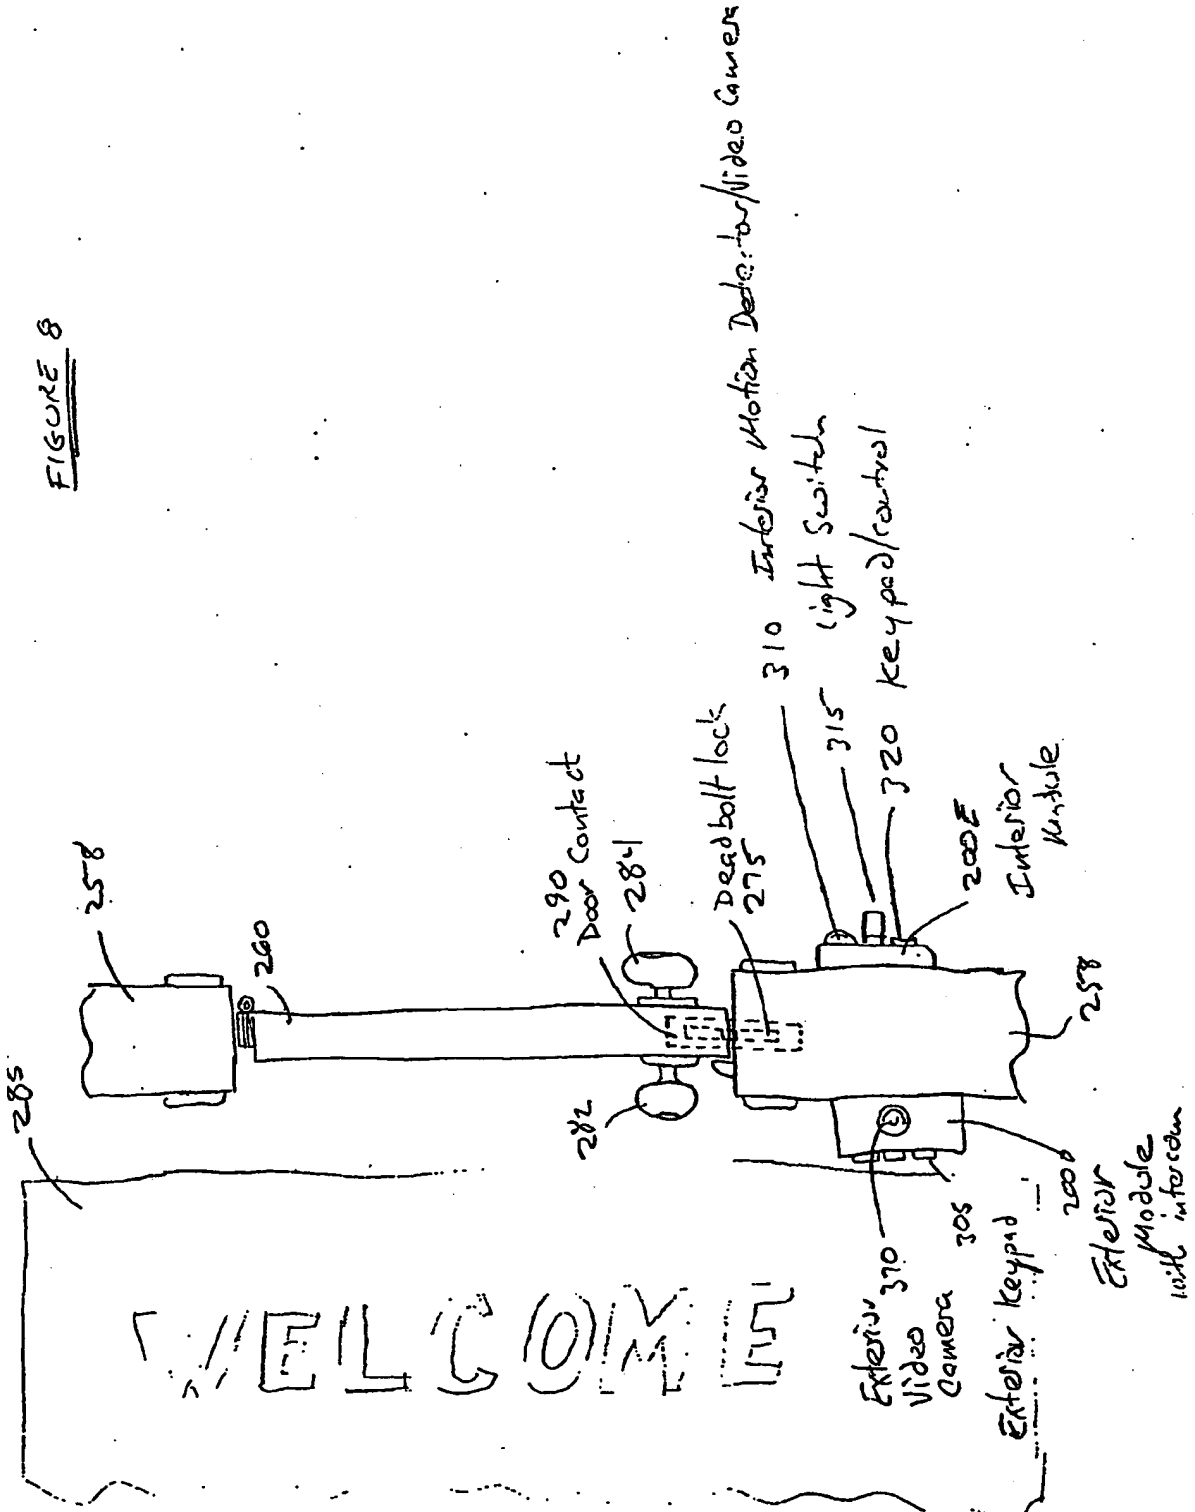 FIGURE 8
285
258
260
290
Door Contact
284
282
Deadbolt lock
275
310 Interior Motion Detector/Video Camera
315 Light Switch
320 keypad/control
200E
Interior
Module
258
WELCOME
Exterior
Video
Camera
370
305
Exterior Keypad
200D
Exterior
Module
with intercom